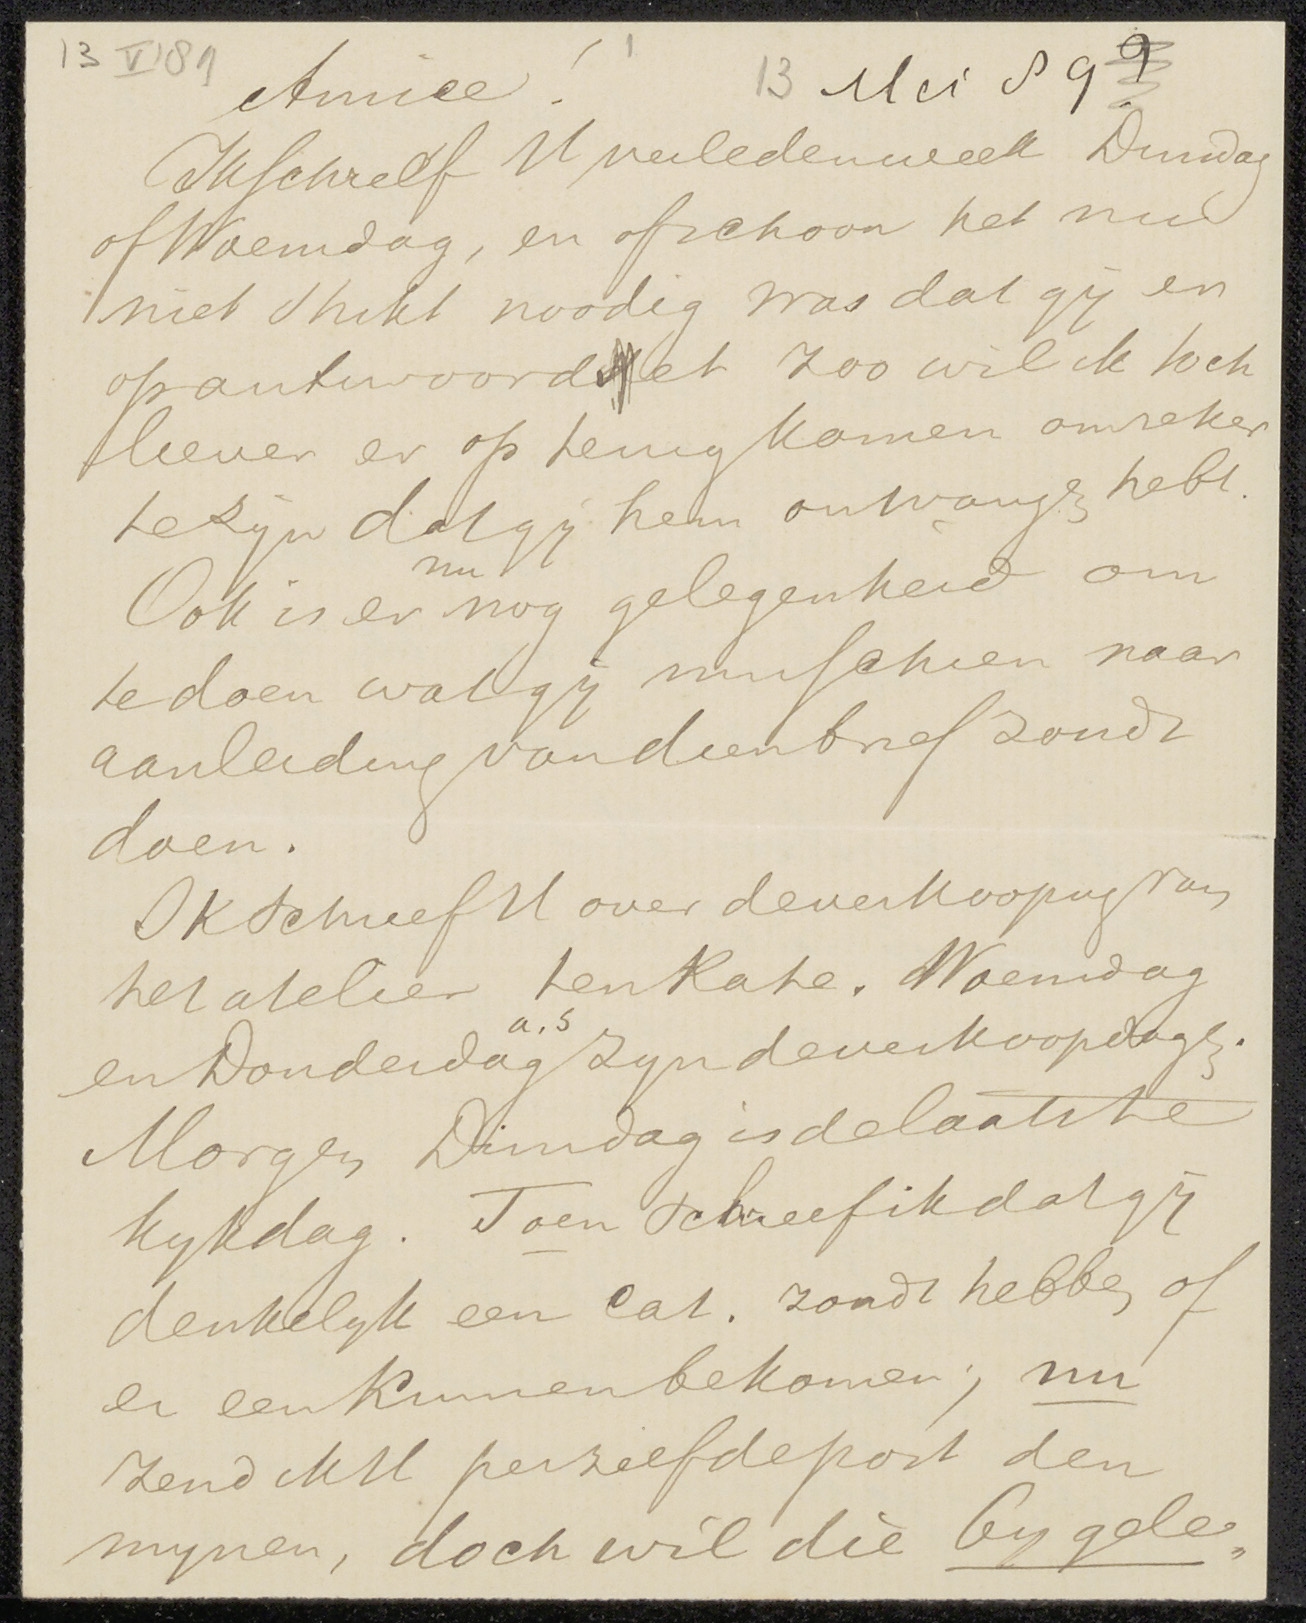 13 V 89
Amice! 13 Mei 89
Ik schreef U verledenweek Dinsdag
of Woensdag, en ofschoon het nu
niet strikt noodig was dat gij er
op antwoorddet zoo wil ik toch
liever er op terug komen om zeker
te zijn dat gij hem ontvangen hebt.
Ook is er nu nog gelegenheid om
te doen wat gij misschien naar
aanleiding van dien brief zoudt
doen.
Ik schreef U over de verkooping van
het atelier ten Kate. Woensdag
en Donderdag a.s zyn de verkoopdagen.
Morgen Dinsdag is de laatste
kykdag. Toen schreef ik dat gij
denkelyk een Cat. zoudt hebben of
er een kunnen bekomen; nu
zend ik U per zelfde post den
mynen, doch wil die by gele„